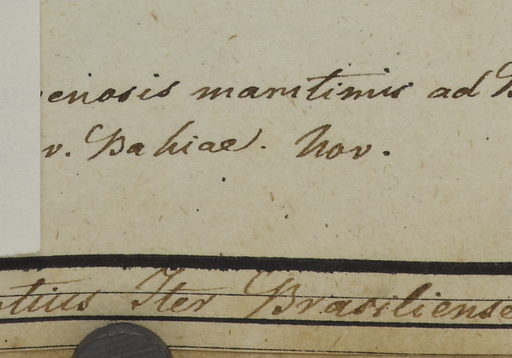 enosis maritimis ad B
v. Bahiae. Nov.
tius Iter Brasiliense